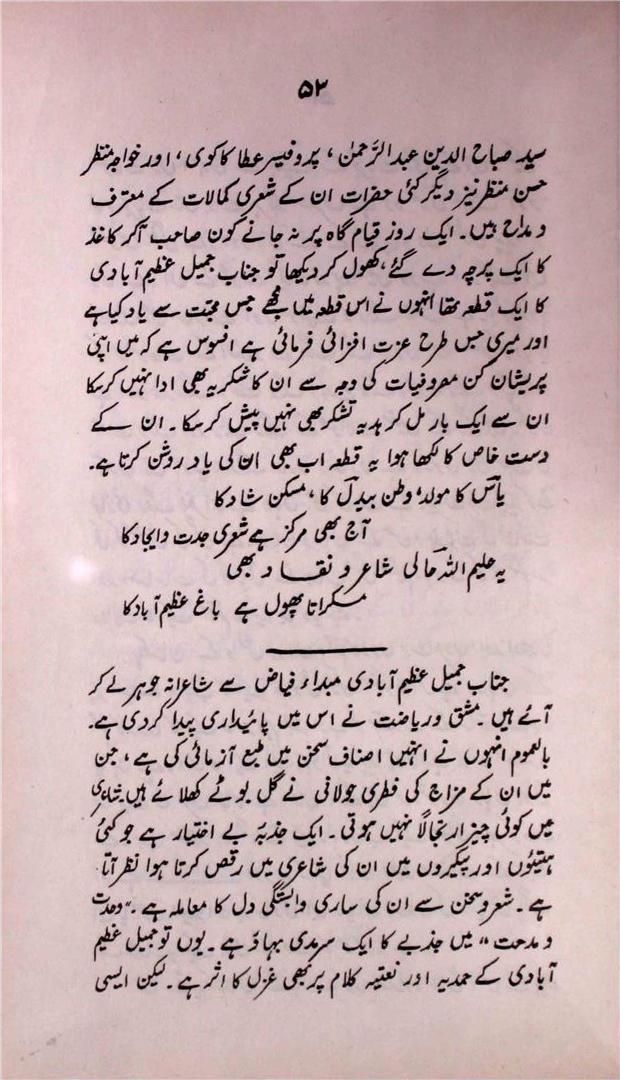 ۵۳
سید صباح الدین عبد الرَّحمٰن ، پروفیسر عطا کاکوی ، اور خواجہ منظر
حسن منظر نیز دیگر کئی حضرات ان کے شعری کمالات کے معترف
و مداح ہیں۔ ایک روز قیام گاہ پر نہ جانے کون صاحب آکر کاغذ
کا ایک پرچہ دے گئے، کھول کر دیکھا تو جناب جمیل عظیم آبادی
کا ایک قطعہ تھا انہوں نے اس قطعہ میں مجھے جس محبّت سے یاد کیا ہے
اور میری جس طرح عزت افزائی فرمائی ہے افسوس ہے کہ میں اپنی
پریشان کن مصروفیات کی وجہ سے ان کا شکریہ بھی ادا نہیں کر سکا
ان سے ایک بار مل کر ہدیہ تشکر بھی نہیں پیش کر سکا۔ ان کے
دست خاص کا لکھا ہوا یہ قطعہ اب بھی ان کی یاد روشن کرتا ہے۔
یاسؔ کا مولد، وطن بیدلؔ کا، مسکن شادؔ کا
آج بھی مرکز ہے شعری جدت و ایجاد کا
یہ علیم اللہ حالیؔ شاعر و نقاد بھی
مسکراتا پھول ہے باغ عظیم آباد کا
جناب جمیل عظیم آبادی مبداء فیاض سے شاعرانہ جوہر لے کر
آئے ہیں۔ مشق و ریاضت نے اس میں پائیداری پیدا کر دی ہے۔
بالعموم انہوں نے انہیں اصناف سخن میں طبع آزمائی کی ہے، جن
میں ان کے مزاج کی فطری جولانی نے گل بوٹے کھلائے ہیں شاعری
میں کوئی چیز ارتجالاً نہیں ہوتی۔ ایک جذبۂ بے اختیار ہے جو کئی
ہیئتوں اور پیکروں میں ان کی شاعری میں رقص کرتا ہوا نظر آتا
ہے۔ شعر و سخن سے ان کی ساری وابستگی دل کا معاملہ ہے۔ "وحدت
و مدحت" میں جذبے کا ایک سرمدی بہاؤ ہے۔ یوں تو جمیل عظیم
آبادی کے حمدیہ اور نعتیہ کلام پر بھی غزل کا اثر ہے۔ لیکن ایسی